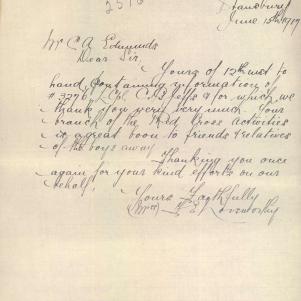 June 15th 1917
Mr C A Edmunds
Dear Sir,
Yours of 12th inst to
hand, containing information of
L/Cpl
for which we
thank you very much. Your
branch of the Red Cross Activities
is a great boon to friends & relatives
of the boys away
Thanking you once
again for your kind efforts on our
behalf.
Yours Faithfully
(Mrs)